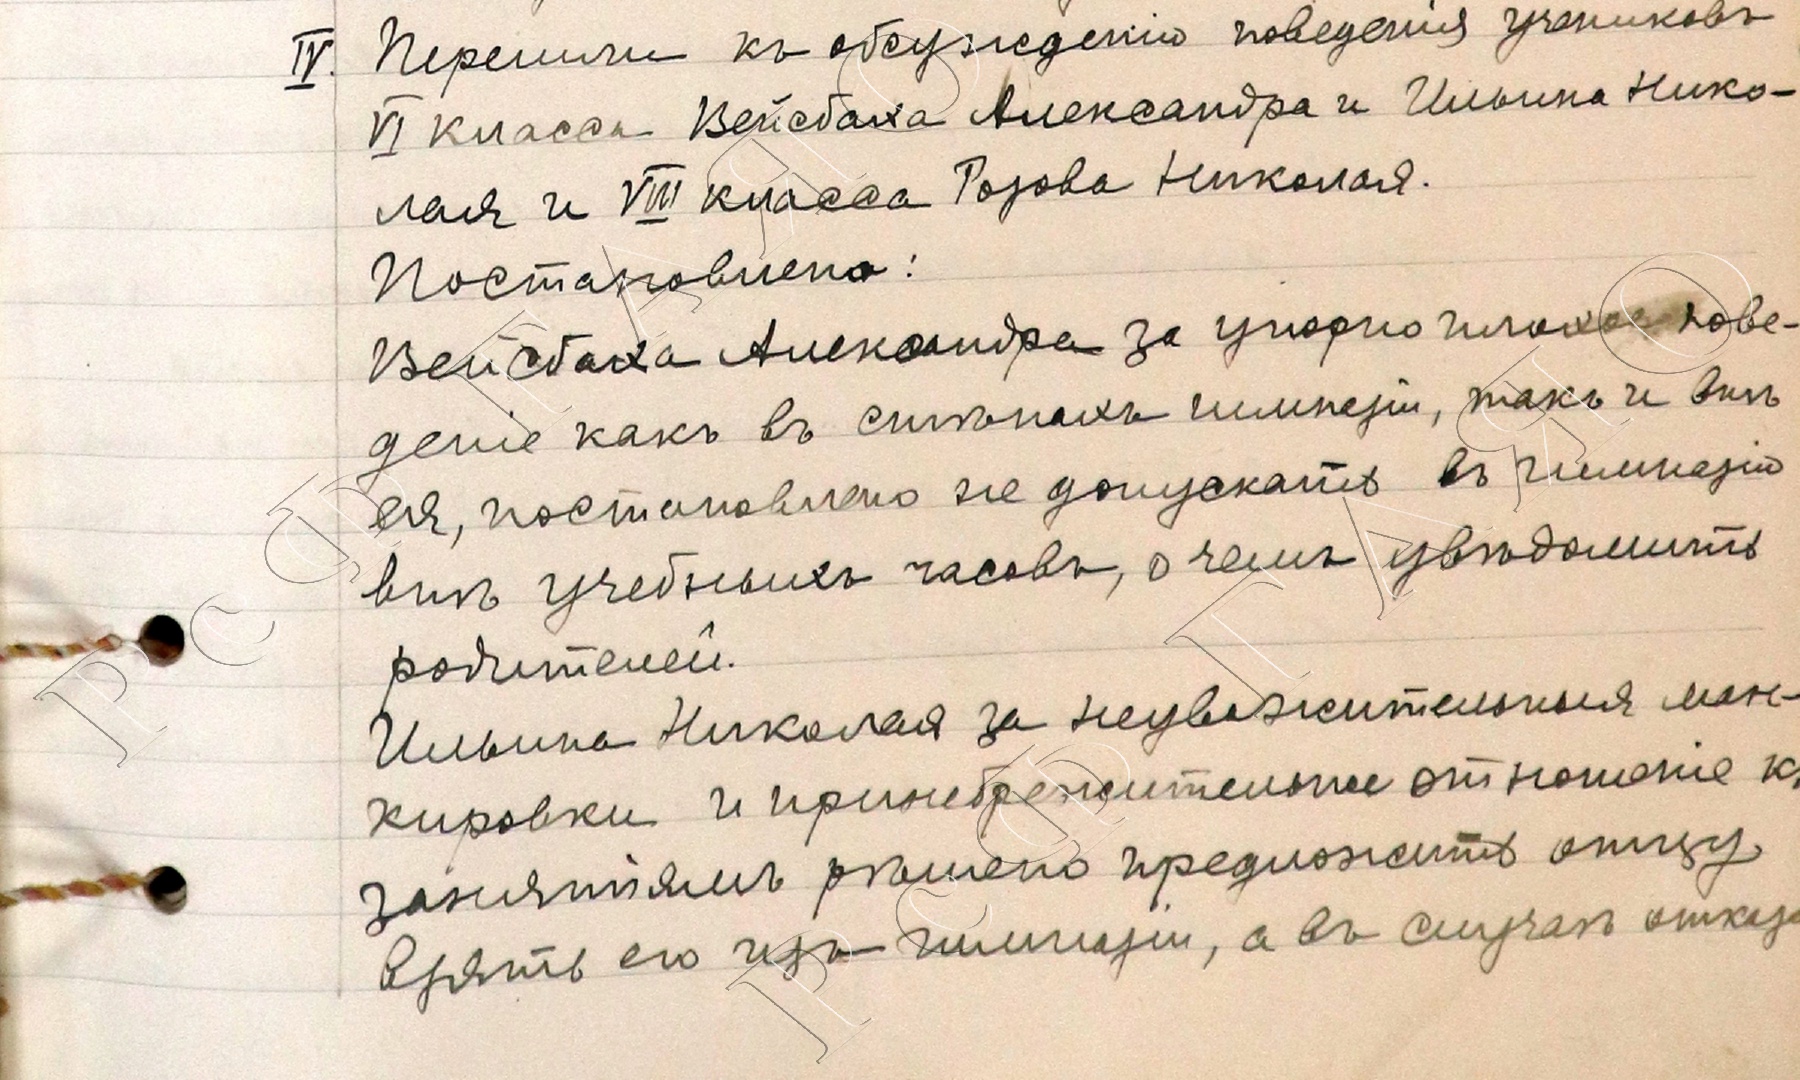 IV. Перешли къ обсужденію поведенія учениковъ
VI класса Вейсбаха Александра и Ильина Нико-
лая и VIII класса Розова Николая.
Постановлено:
Вейсбаха Александра за упорно плохое пове-
деніе какъ въ стѣнахъ гимназіи, такъ и внѣ
ея, постановлено не допускать въ гимназію
внѣ учебныхъ часовъ, о чемъ увѣдомить
родителей.
Ильина Николая за неуважительныя ман-
кировки и пренебрежительное отношеніе къ
занятіямъ рѣшено предложить отцу
взять его изъ гимназіи, а въ случаѣ отказа
РСФ ГАЯО
РСФ ГАЯО